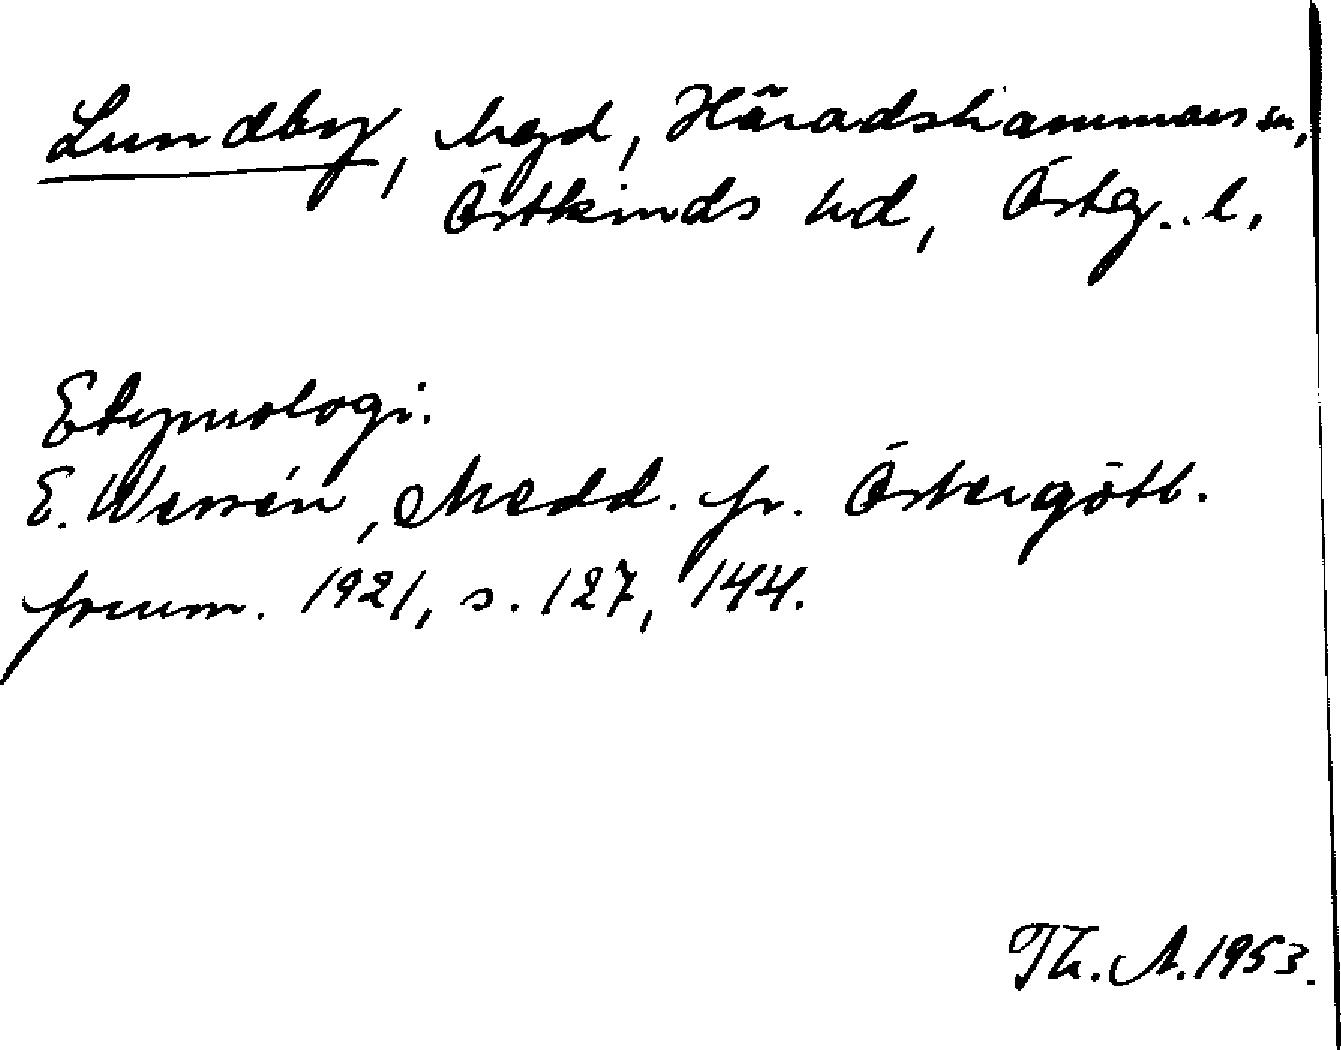 Lundby, hgd, Häradshammars sn,
Östkinds hd, Österg. l.
Etymologi.
E. Wessén, Medd. fr. Östergötl.
fornm. 1921, s. 127, 144.
Th. A. 1953.